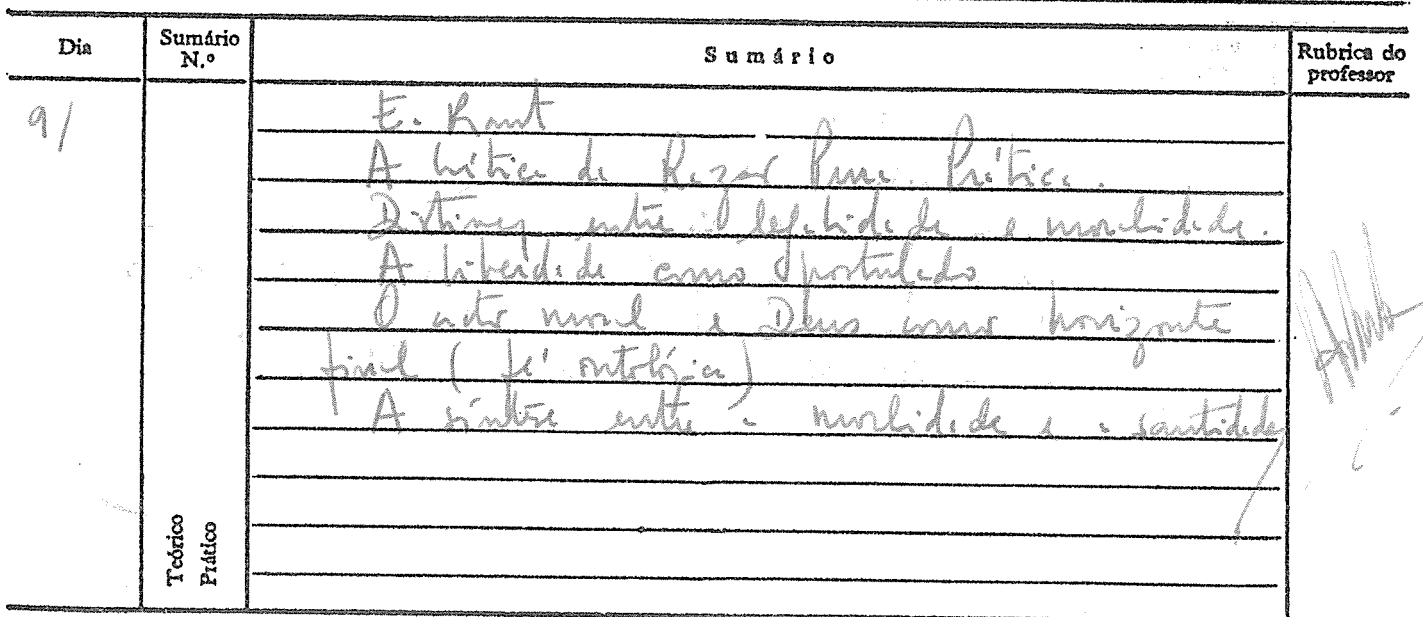 Dia Sumário N.º Sumário Rubrica do professor
9/
E. Kant
A Crítica da Razão Pura Prática.
Distinção entre legalidade e moralidade.
A liberdade como postulado
O acto moral e Deus como horizonte
final (fé ontológica)
A síntese entre a moralidade e a santidade
Teórico
Prático